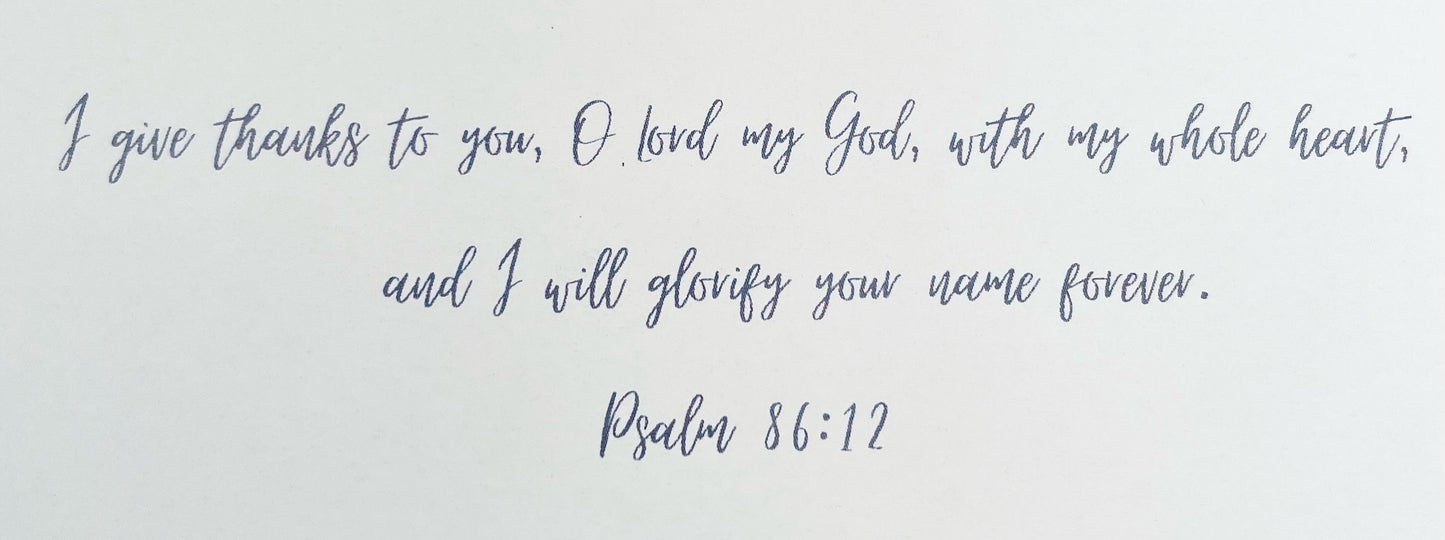 I give thanks to you, O Lord my God, with my whole heart,
and I will glorify your name forever.
Psalm 86:12